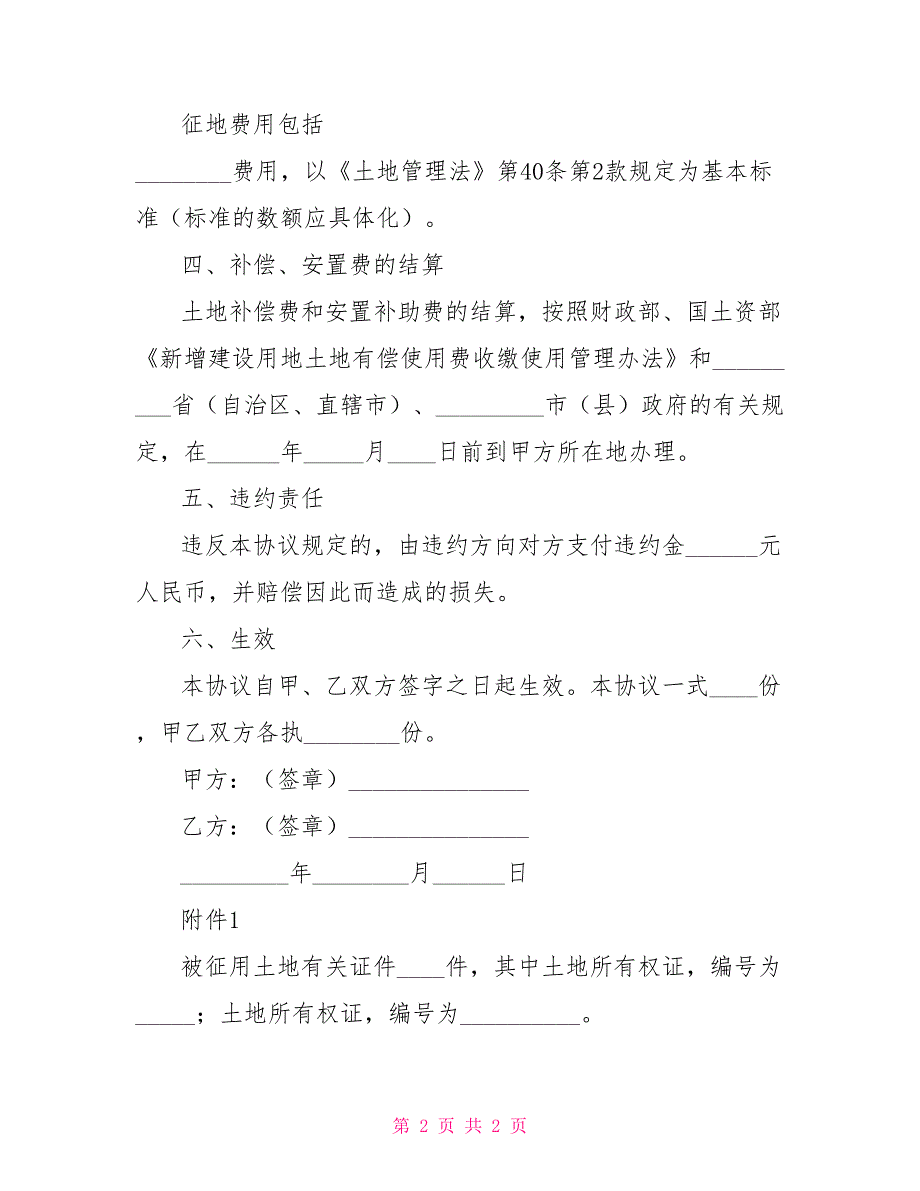 征地费用包括
________费用，以《土地管理法》第40条第2款规定为基本标
准（标准的数额应具体化）。
四、补偿、安置费的结算
土地补偿费和安置补助费的结算，按照财政部、国土资部
《新增建设用地土地有偿使用费收缴使用管理办法》和______
___省（自治区、直辖市）、_________市（县）政府的有关规
定，在______年_____月____日前到甲方所在地办理。
五、违约责任
违反本协议规定的，由违约方向对方支付违约金______元
人民币，并赔偿因此而造成的损失。
六、生效
本协议自甲、乙双方签字之日起生效。本协议一式____份
，甲乙双方各执________份。
甲方：（签章）_______________
乙方：（签章）_______________
_________年________月______日
附件1
被征用土地有关证件____件，其中土地所有权证，编号为
_____；土地所有权证，编号为__________。
第 2 页 共 2 页